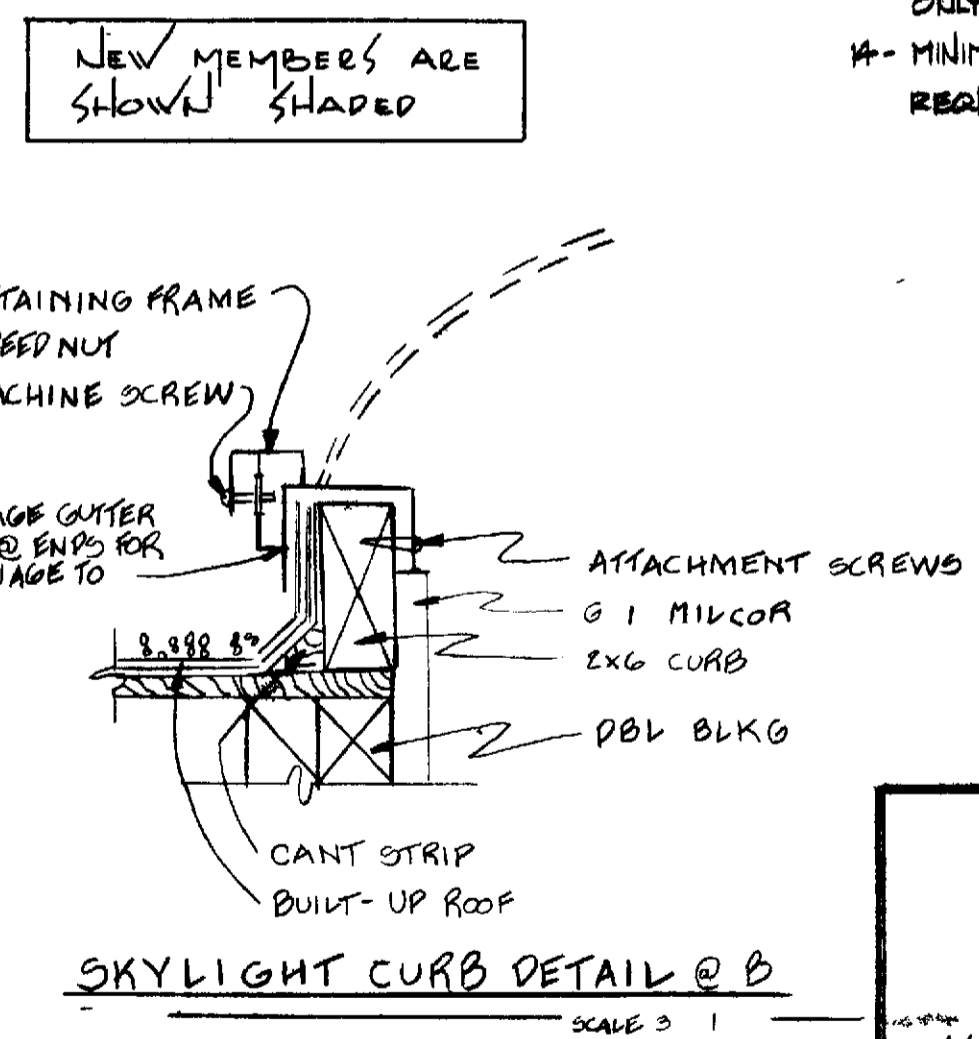 NEW MEMBERS ARE
SHOWN SHADED
ONLY
14- MINIM
REQU
TAINING FRAME
EED NUT
ACHINE SCREW
AGE GUTTER
@ ENDS FOR
NAGE TO
ATTACHMENT SCREWS
G I MILCOR
2x6 CURB
DBL BLKG
CANT STRIP
BUILT-UP ROOF
SKYLIGHT CURB DETAIL @ B
SCALE 3 1